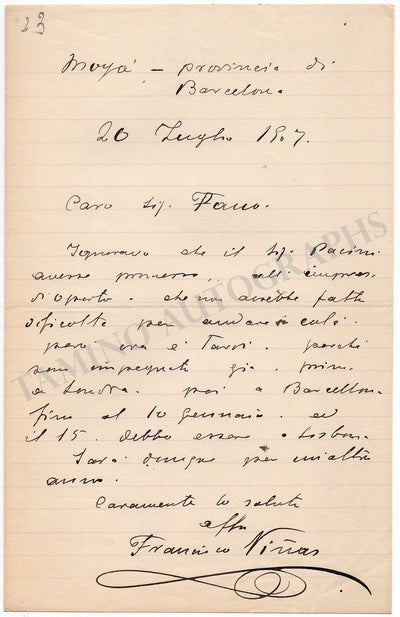 23
Moyá - provincia di
Barcelona
20 Luglio 1907.
Caro Sig. Fano.
Ignoravo che il Sig. Pacini
avesse promesso.. all' impresa
d'Oporto. che non avrebbe fatto
dificoltà per andare colà.
però ora è Tardi. perchè
sono impegnato già. prima
a Londra. poi a Barcellona
fino al 10 gennaio. ed
il 15. debbo essere a Lisbona.
Sarà dunque per un'altro
anno.
Caramente lo saluta
affmo
Francisco Viñas
TAMINO AUTOGRAPHS